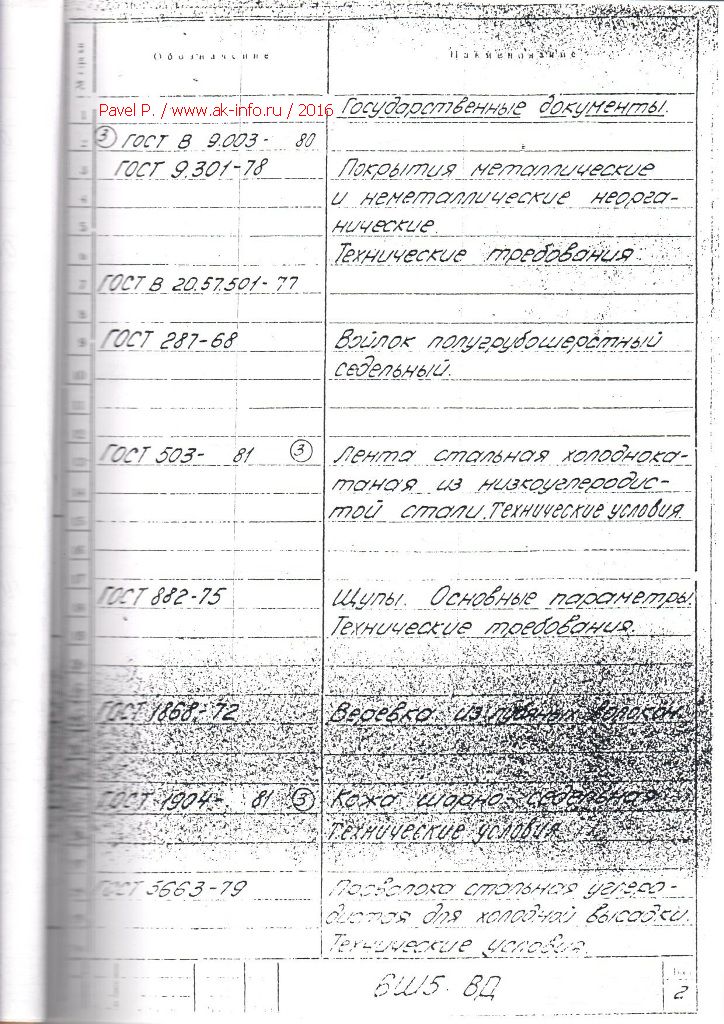 Обозначение Наименование
Pavel P. / www.ak-info.ru / 2016 Государственные документы.
③ ГОСТ В 9.003- 80
ГОСТ 9.301-78 Покрытия металлические
и неметаллические неорга-
нические.
Технические требования.
ГОСТ В 20.57.501-77
ГОСТ 287-68 Войлок полугрубошерстный
седельный.
ГОСТ 503- 81 ③ Лента стальная холоднока-
таная из низкоуглеродис-
той стали. Технические условия.
ГОСТ 882-75 Щупы. Основные параметры.
Технические требования.
ГОСТ 1868-72 Веревка из лубяных волокон.
ГОСТ 1904- 81 ③ Кожа шорно-седельная
Технические условия
ГОСТ 5663-79 Проволока стальная углеро-
дистая для холодной высадки.
Технические условия.
6Ш5 ВД
2